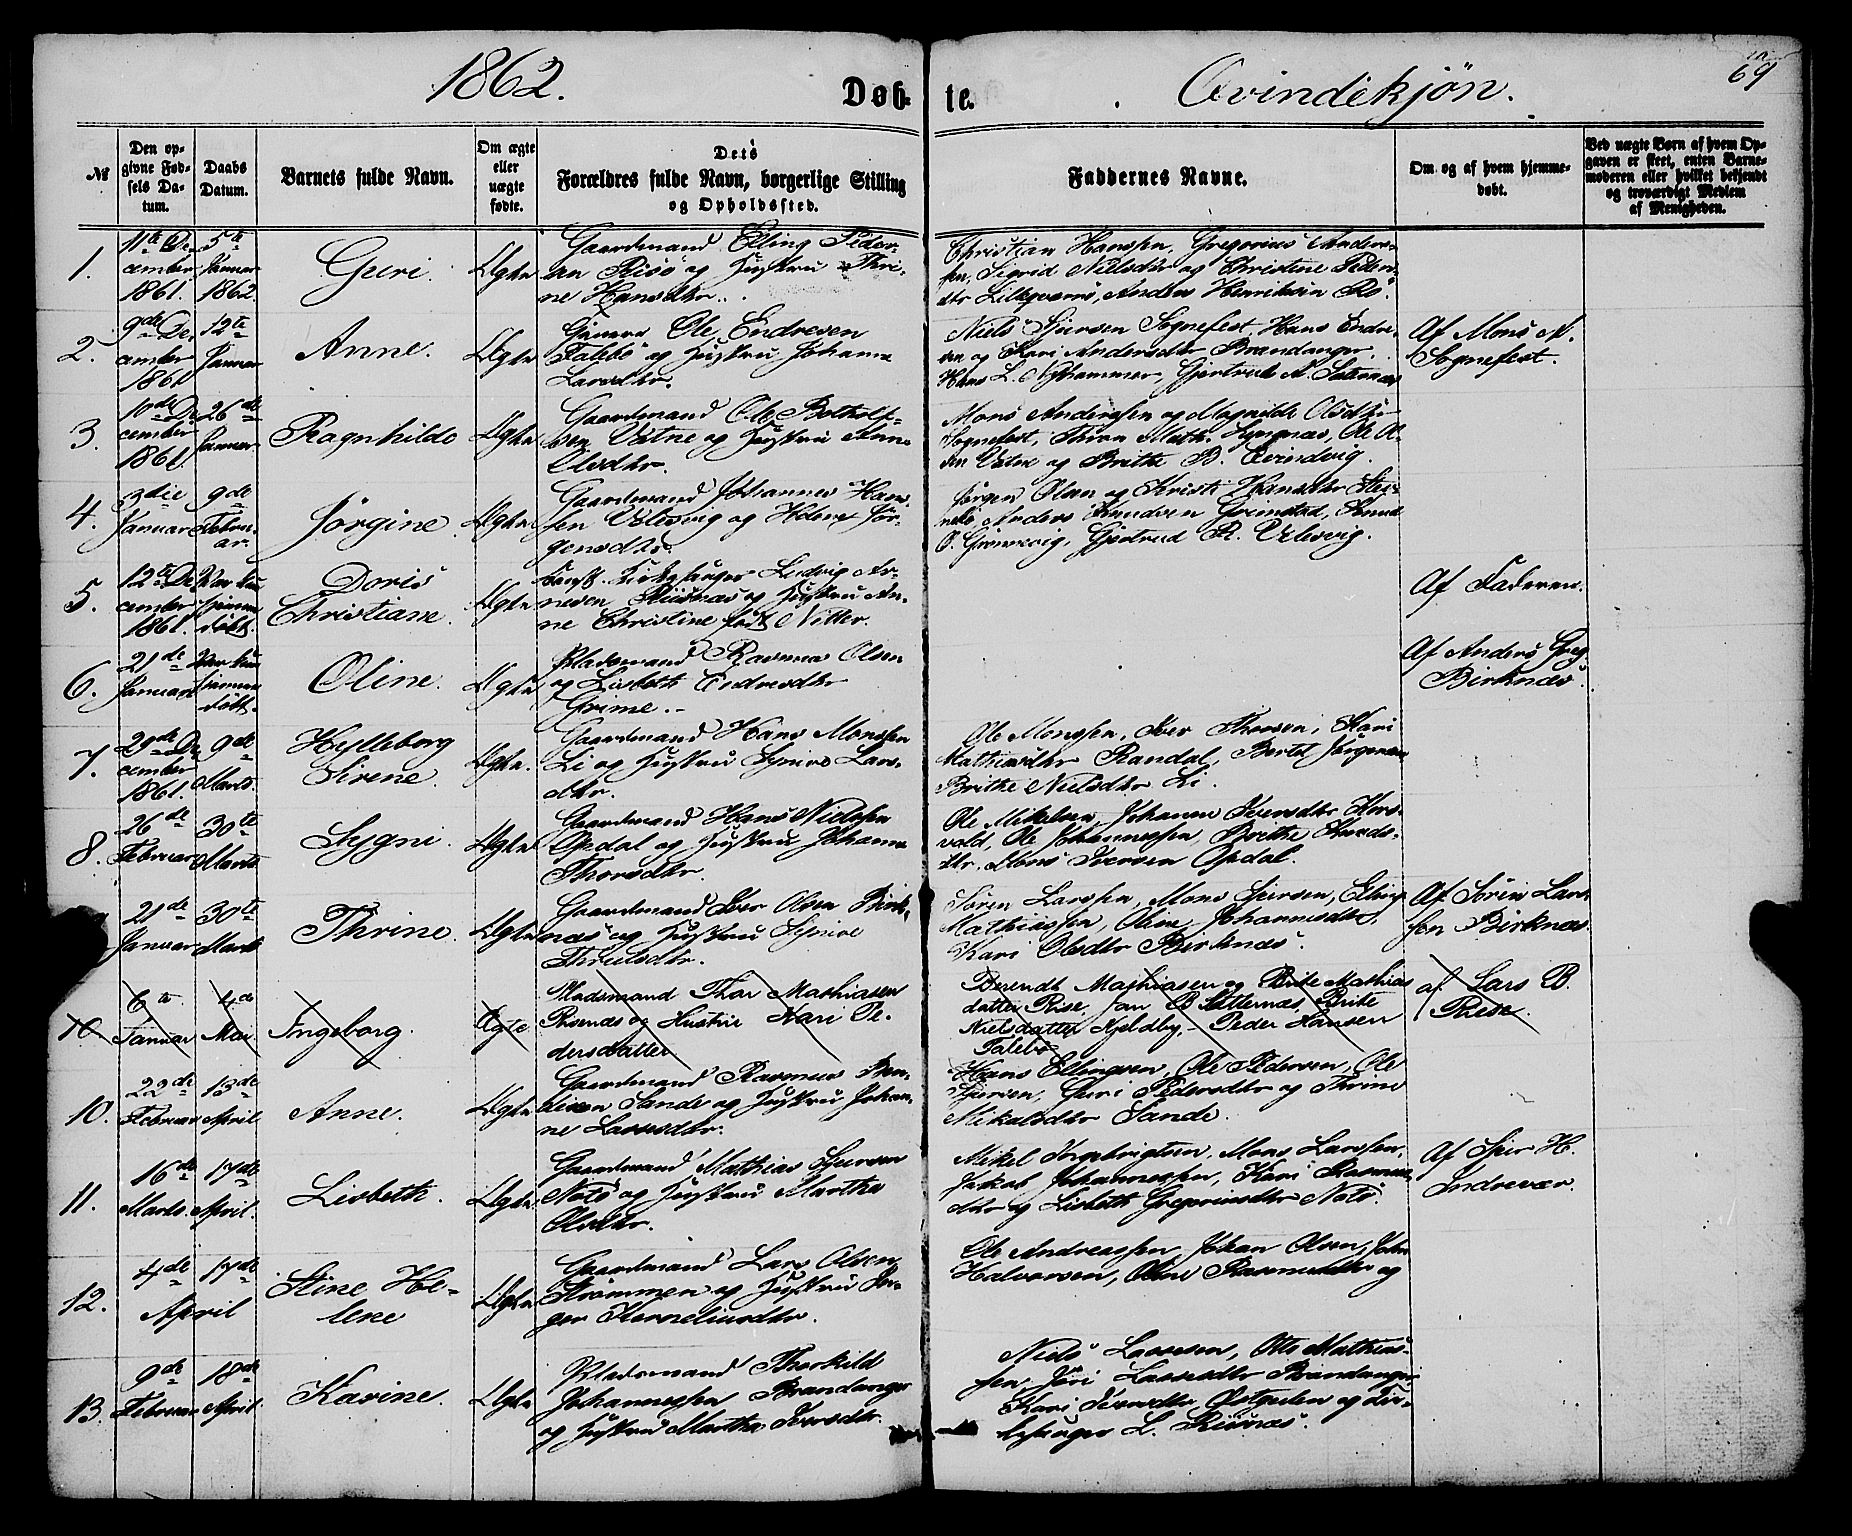 1862.
Døb-
te.
Qvindekjøn.
69
No
Den op-
givne Fød-
sels Da-
tum.
Daabs
Datum.
Barnets fulde Navn.
Om ægte
eller
uægte
fødte.
Det's
Forældres fulde Navn, borgerlige Stilling
og Opholdssted.
Faddernes Navne.
Om og af hvem hjemme-
døbt.
Ved uægte Børn af hvem Op-
gaven er skeet, enten Barne-
moderen eller hvilket bekjendt
og troværdigt Medlem
af Menigheden.
1.
11te De
cember
1861.
5te
Januar
1862.
Guri.
Ægte
Gaardmand Elling Peder-
sen Risö og Hustru Thri-
ne Hansdtr.
Christian Hanssen, Gregorius Anders-
sen, Sigrid Nielsdtr og Christine Peders-
dtr Anders Henriksen
2.
9de De
cember
1861
12te
Januar
Anne.
Ægte
Ole Endresen
og Hustru Johanne
Larsdtr.
Niels Sjursen Sognefest, Hans Endre-
sen og Kari Andersdtr Brandanger,
Hans L. Nyhammer, Gjertrud N.
Af Mons A.
Sognefest.
3.
10de De
cember
1861.
26de
Januar.
Ragnhilde
Ægte
Gaardmand Ole Botholf-
sen og Hustru Anne
Olsdtr.
Mons Anderssen og Magnilde Olsdtr
Sognefest, Math. Ole Ol-
sen og Brithe B. Evindvig.
4.
3die
Januar
9de
Febru-
ar.
Jörgine.
Ægte
Gaardmand Johannes Hans-
sen og Helene Jör-
gensdtr.
Jörgen Olsen og Kristi Hansdtr
Anders Knudsen Grimstad, Knud
Gjertrud R.
5.
12te De
cember
1861.
Var kun
hjemme
döbt.
Doris
Christiane.
Ægte
Kirkesanger Ludvig Ar-
nesen Riisnæs og Hustru An-
ne Christine födt Nitter.
Af Faderen.
6.
21de
Januar
Var kun
hjemme
döbt.
Oline.
Ægte
Pladsmand Rasmus Olsen
og Lisbeth Endresdtr
Grime.
Af Anders Greg.
Birknæs.
7.
29de De
cember
1861.
9de
Marts.
Hylleborg
Sirene.
Ægte.
Gaardmand Hans Monssen
Li og Hustru Synive Lars-
dtr.
Ole Monssen, Iver Thorsen, Kari
Mathiasdtr Randal, Bertel Jörgensen
Brithe Nielsdtr Li.
8.
26de
Februar
30te
Marts
Sygni.
Ægte
Gaardmand Hans Nielssen
Opdal og Hustru Johanne
Thorsdtr.
Ole Mikelsen, Johanne Iversdtr
Ole Johannessen, Brithe Knuds-
dtr. Mons Iversen Opdal.
21de
Januar
30te
Marts
Thrine.
Ægte
Gaardmand Iver Olsen Birk-
næs og Hustru Synive
Thrulsdtr.
Sören Larssen, Mons Sjursen, Elling
Mathiassen, Oline Johannesdtr,
Kari Olsdtr Birknæs.
Af Sören Lars-
sen Birknæs.
10
6te
Januar
4de
Mai
Ingeborg.
Ægte
Pladsmand Thor Mathiasen
Risnæs og Hustru Kari Pe-
dersdatter
Berendt Mathiasen og Brite Mathias
datter Rise, Jan B Sætternæs, Brite
Nielsdatter Njeldby, - Peder Hansen
Talebo
af Lars B.
Riise.
10.
22de
Februar
13de
April
Anne.
Ægte
Gaardmand Rasmus
Sande og Hustru Johan-
ne Larsdtr.
Hans Ellingsen, Ole Pedersen, Ole
Sjursen, Guri Pedersdtr og Thrine
Mikalsdtr Sande.
11.
16de
Marts.
17de
April.
Lisbeth.
Ægte
Gaardmand Mathias Sjursen
Notö og Hustru Martha
Olsdtr.
Mikel Ingebrigtsen, Mons Larssen,
Jakob Johannessen, Kari Rasmus-
dtr og Lisbeth Gregoriusdtr Notö.
Af Sjur H.
Indrevær.
12.
4de
April
17de
Stine He-
lene
Ægte
Gaardmand Lars Olsen
Strömmen og Hustru In-
ger Korneliusdtr.
Ole Andreassen, Johan Olsen, John
Halvorsen, Oline Rasmusdtr og
13.
9de
Februar
18de
April
Karine.
Ægte
Pladsmand Thorkild
Johannessen Brandanger
og Hustru Martha Iversdtr.
Niels Larssen, Otte Mathias-
sen, Jöri Larsdtr Brandanger
Kari Iversdtr, Östgulen og Kir-
kesanger L. Riisnæs.